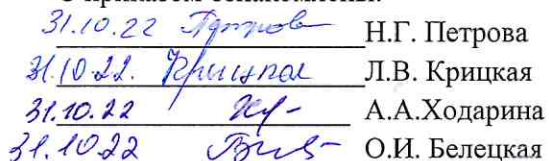 С приказом ознакомлены:
31.10.22 Петрова Н.Г. Петрова
31.10.22. Крицкая Л.В. Крицкая
31.10.22 А.А.Ходарина
31.10.22 О.И. Белецкая